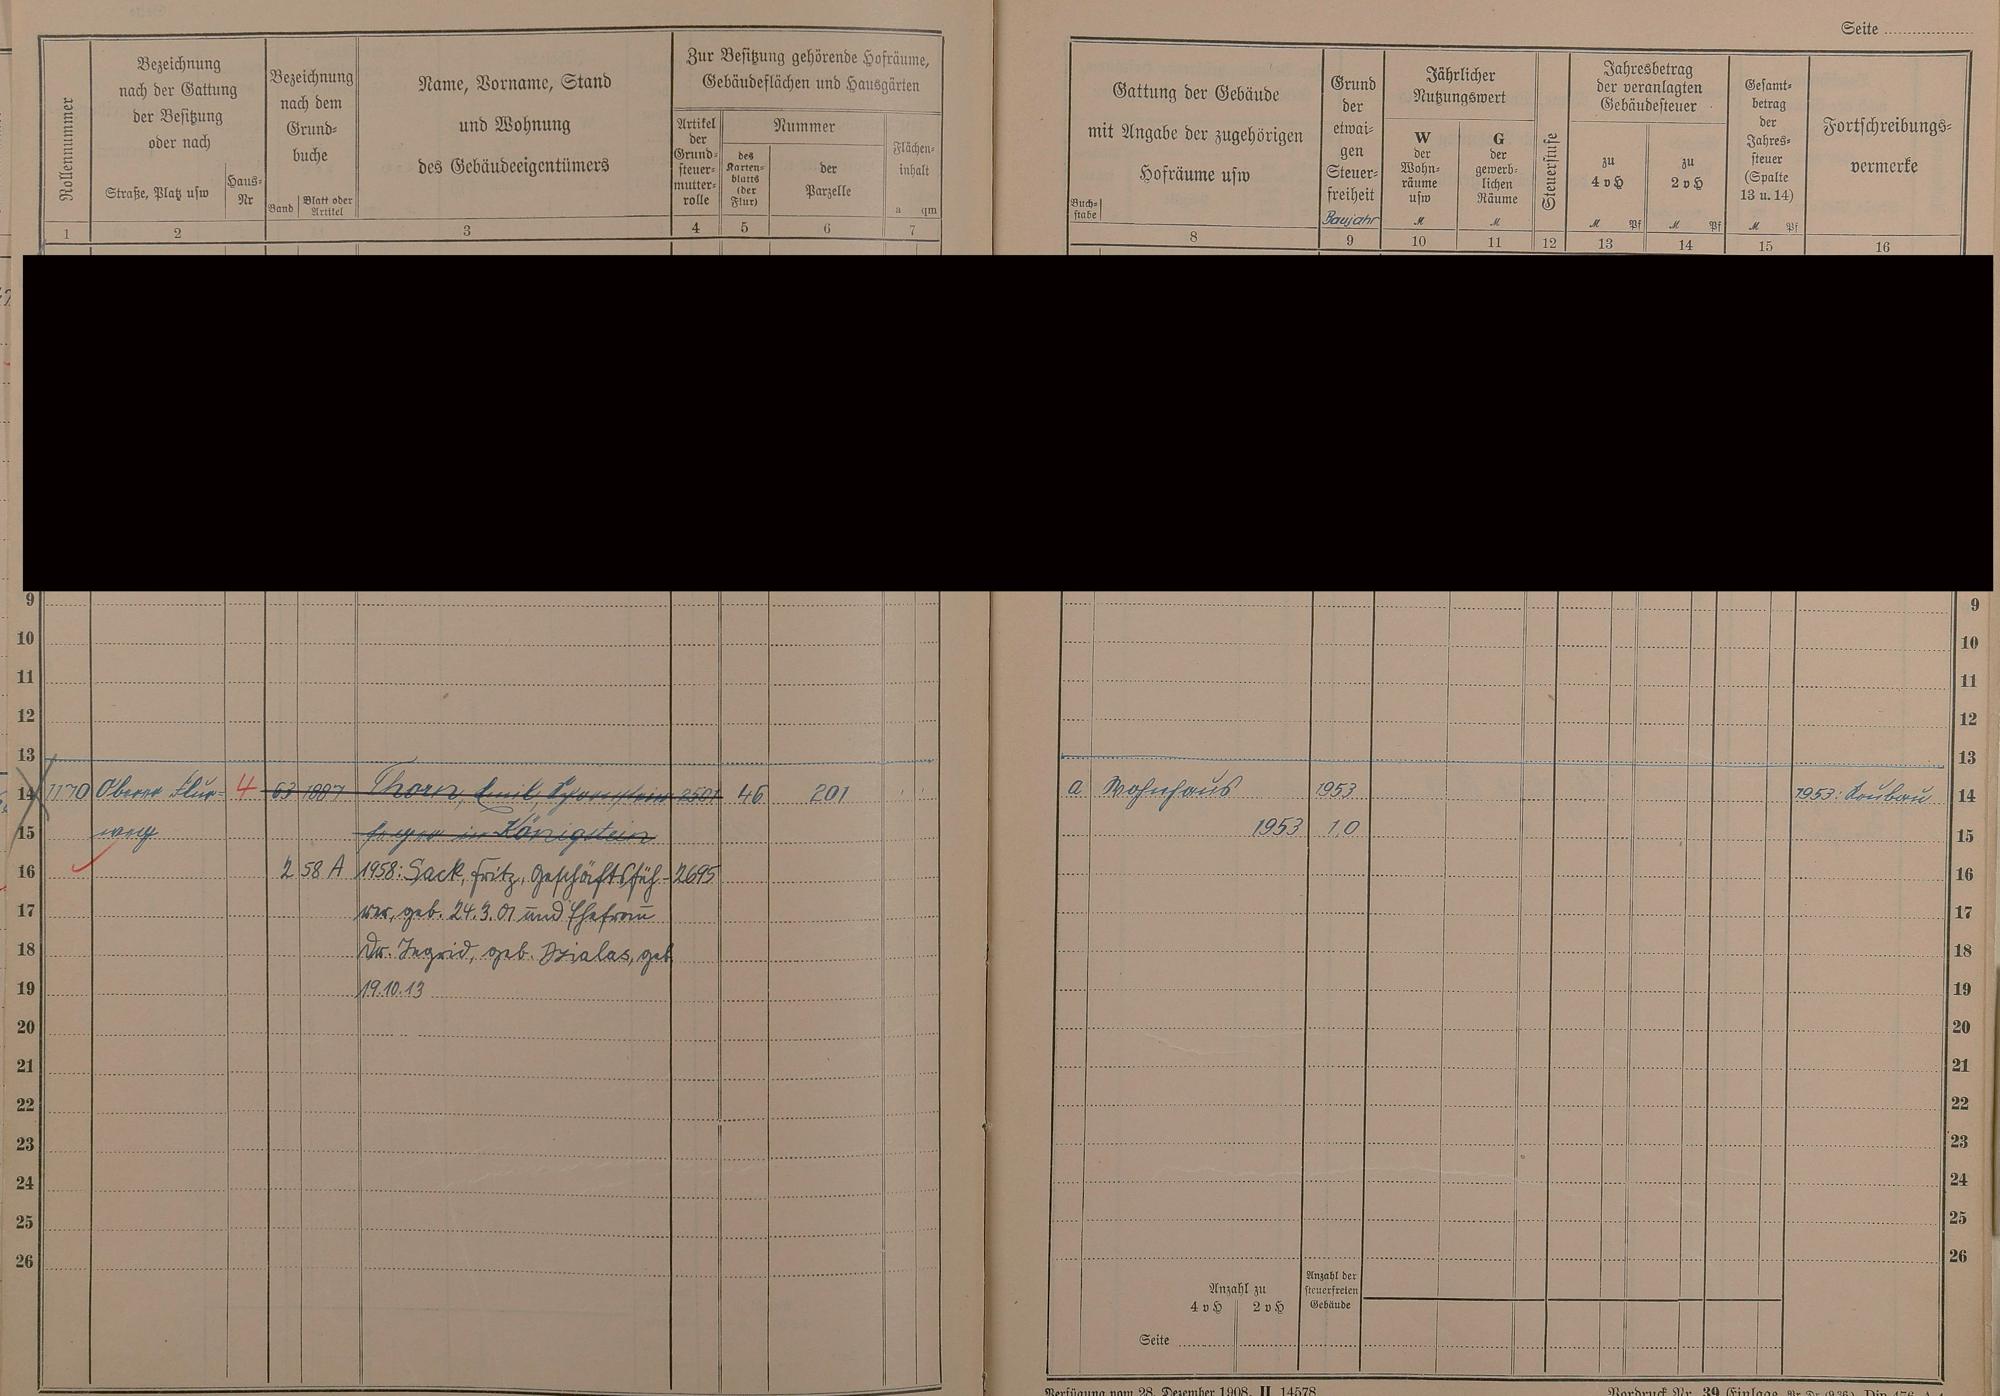 Seite
Rollennummer
Bezeichnung
nach der Gattung
der Besitzung
oder nach
Straße, Platz usw
Haus-
Nr
Bezeichnung
nach dem
Grund-
buche
Band
Blatt oder
Artikel
Name, Vorname, Stand
und Wohnung
des Gebäudeeigentümers
Zur Besitzung gehörende Hofräume,
Gebäudeflächen und Hausgärten
Artikel
der
Grund-
steuer-
mutter-
rolle
Nummer
des
Karten-
blatts
(der
Flur)
der
Parzelle
Flächen-
inhalt
a qm
1 2 3 4 5 6 7
Gattung der Gebäude
mit Angabe der zugehörigen
Hofräume usw
Buch-
stabe
Grund
der
etwai-
gen
Steuer-
freiheit
Baujahr
Jährlicher
Nutzungswert
W
der
Wohn-
räume
usw
M
G
der
gewerb-
lichen
Räume
M
Steuerstufe
Jahresbetrag
der veranlagten
Gebäudesteuer
zu
4 v H
M Pf
zu
2 v H
M Pf
Gesamt-
betrag
der
Jahres-
steuer
(Spalte
13 u. 14)
M Pf
Fortschreibungs-
vermerke
8 9 10 11 12 13 14 15 16
9 9
10 10
11 11
12 12
13 13
14 1170 Oberer Flur- 4 63 1887 Thorn, Emil, Schornstein- 2501 46 201 a Wohnhaus 1953 1953: Neubau 14
15 weg feger in Königstein 1953 1,0 15
16 2 58 A 1958: Sack, Fritz, Geschäftsfüh- 2695 16
17 rer, geb. 24.3.01 und Ehefrau 17
18 Dr. Ingrid, geb. Dzialas, geb 18
19 19.10.13 19
20 20
21 21
22 22
23 23
24 24
25 25
26 26
Anzahl zu
4 v H 2 v H
Anzahl der
steuerfreien
Gebäude
Seite
Verfügung vom 28. Dezember 1908. II 14578
Vordruck Nr. 39 (Einlage